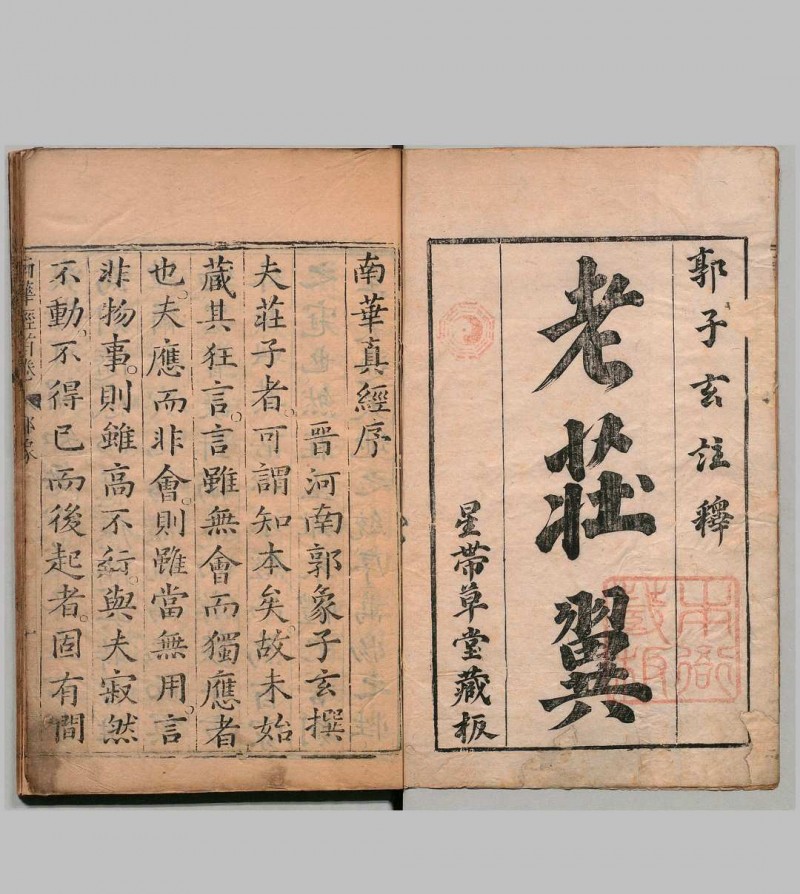 郭子玄註釋
老莊翼
星帶草堂藏板
本衙藏板
南華真經序
晉河南郭象子玄撰
夫莊子者。可謂知本矣。故未始
藏其狂言。言雖無會而獨應者
也。夫應而非會。則雖當無用。言
非物事。則雖高不行。與夫寂然
不動。不得已而後起者。固有間
南華經首卷
郭象